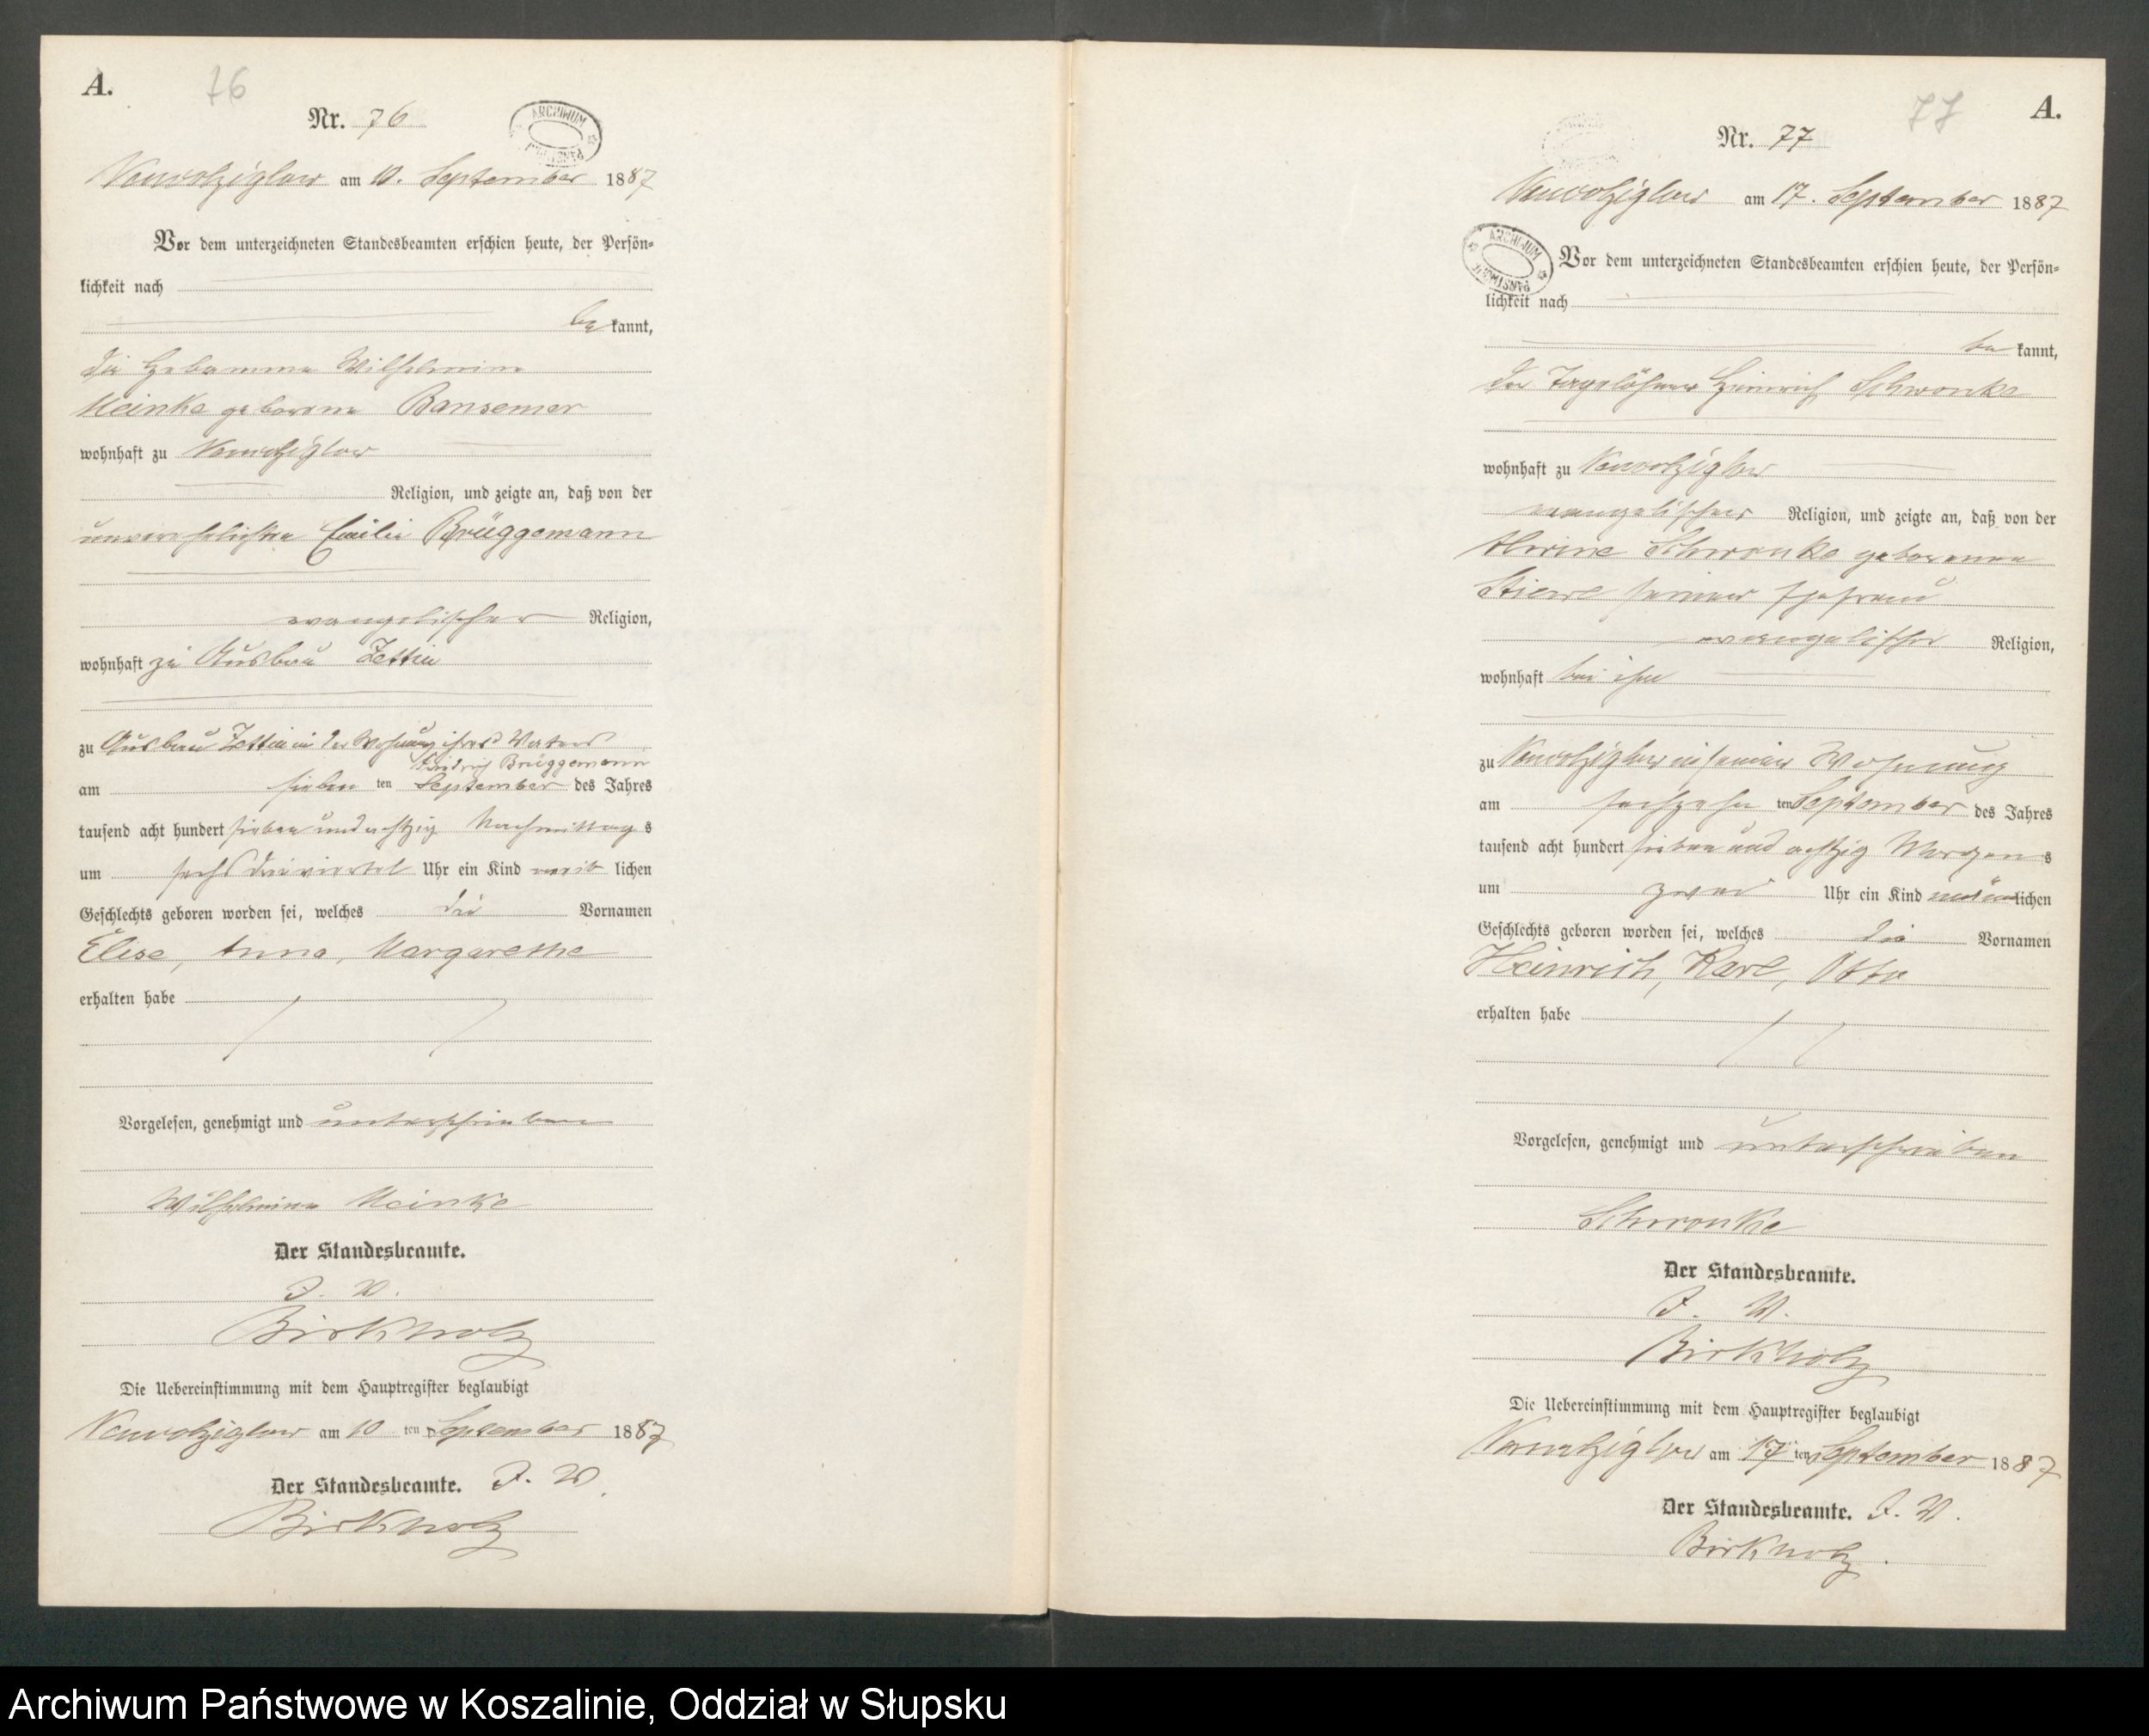 A.
76
Nr. 76
ARCHIWUM
Neuvolziglow am 10. September 1887
Vor dem unterzeichneten Standesbeamten erschien heute, der Persön=
lichkeit nach
be kannt,
die Hebamme Wilhelmine
Meinke geborene Bansemer
wohnhaft zu Neuvolziglow
Religion, und zeigte an, daß von der
unverehelichten Emilie Brüggemann
evangelischer Religion,
wohnhaft zu Ausbau Zettin
zu Ausbau Zettin in der Wohnung ihres Vaters
Friedrich Brüggemann
am sieben ten September des Jahres
tausend acht hundert sieben und achtzig Nachmittag s
um sechs dreiviertel Uhr ein Kind weib lichen
Geschlechts geboren worden sei, welches die Vornamen
Elise, Anna, Margarethe
erhalten habe
Vorgelesen, genehmigt und unterschrieben
Wilhelmine Meinke
Der Standesbeamte.
J. V.
Birkholz
Die Uebereinstimmung mit dem Hauptregister beglaubigt
Neuvolziglow am 10 ten September 1887
Der Standesbeamte. J. V.
Birkholz
77
A.
Nr. 77
Neuvolziglow am 17. September 1887
ARCHIWUM
Vor dem unterzeichneten Standesbeamten erschien heute, der Persön=
lichkeit nach
be kannt,
der Tagelöhner Heinrich Schwonke
wohnhaft zu Neuvolziglow
evangelischer Religion, und zeigte an, daß von der
Alwine Schwonke geborenen
Stiewe seiner Ehefrau
evangelischer Religion,
wohnhaft bei ihm
zu Neuvolziglow in seiner Wohnung
am sechzehn ten September des Jahres
tausend acht hundert sieben und achtzig Morgen s
um zwei Uhr ein Kind männlichen
Geschlechts geboren worden sei, welches die Vornamen
Heinrich, Karl, Otto
erhalten habe
Vorgelesen, genehmigt und unterschrieben
Schwonke
Der Standesbeamte.
J. V.
Birkholz
Die Uebereinstimmung mit dem Hauptregister beglaubigt
Neuvolziglow am 17 ten September 1887
Der Standesbeamte. J. V.
Birkholz.
Archiwum Państwowe w Koszalinie, Oddział w Słupsku